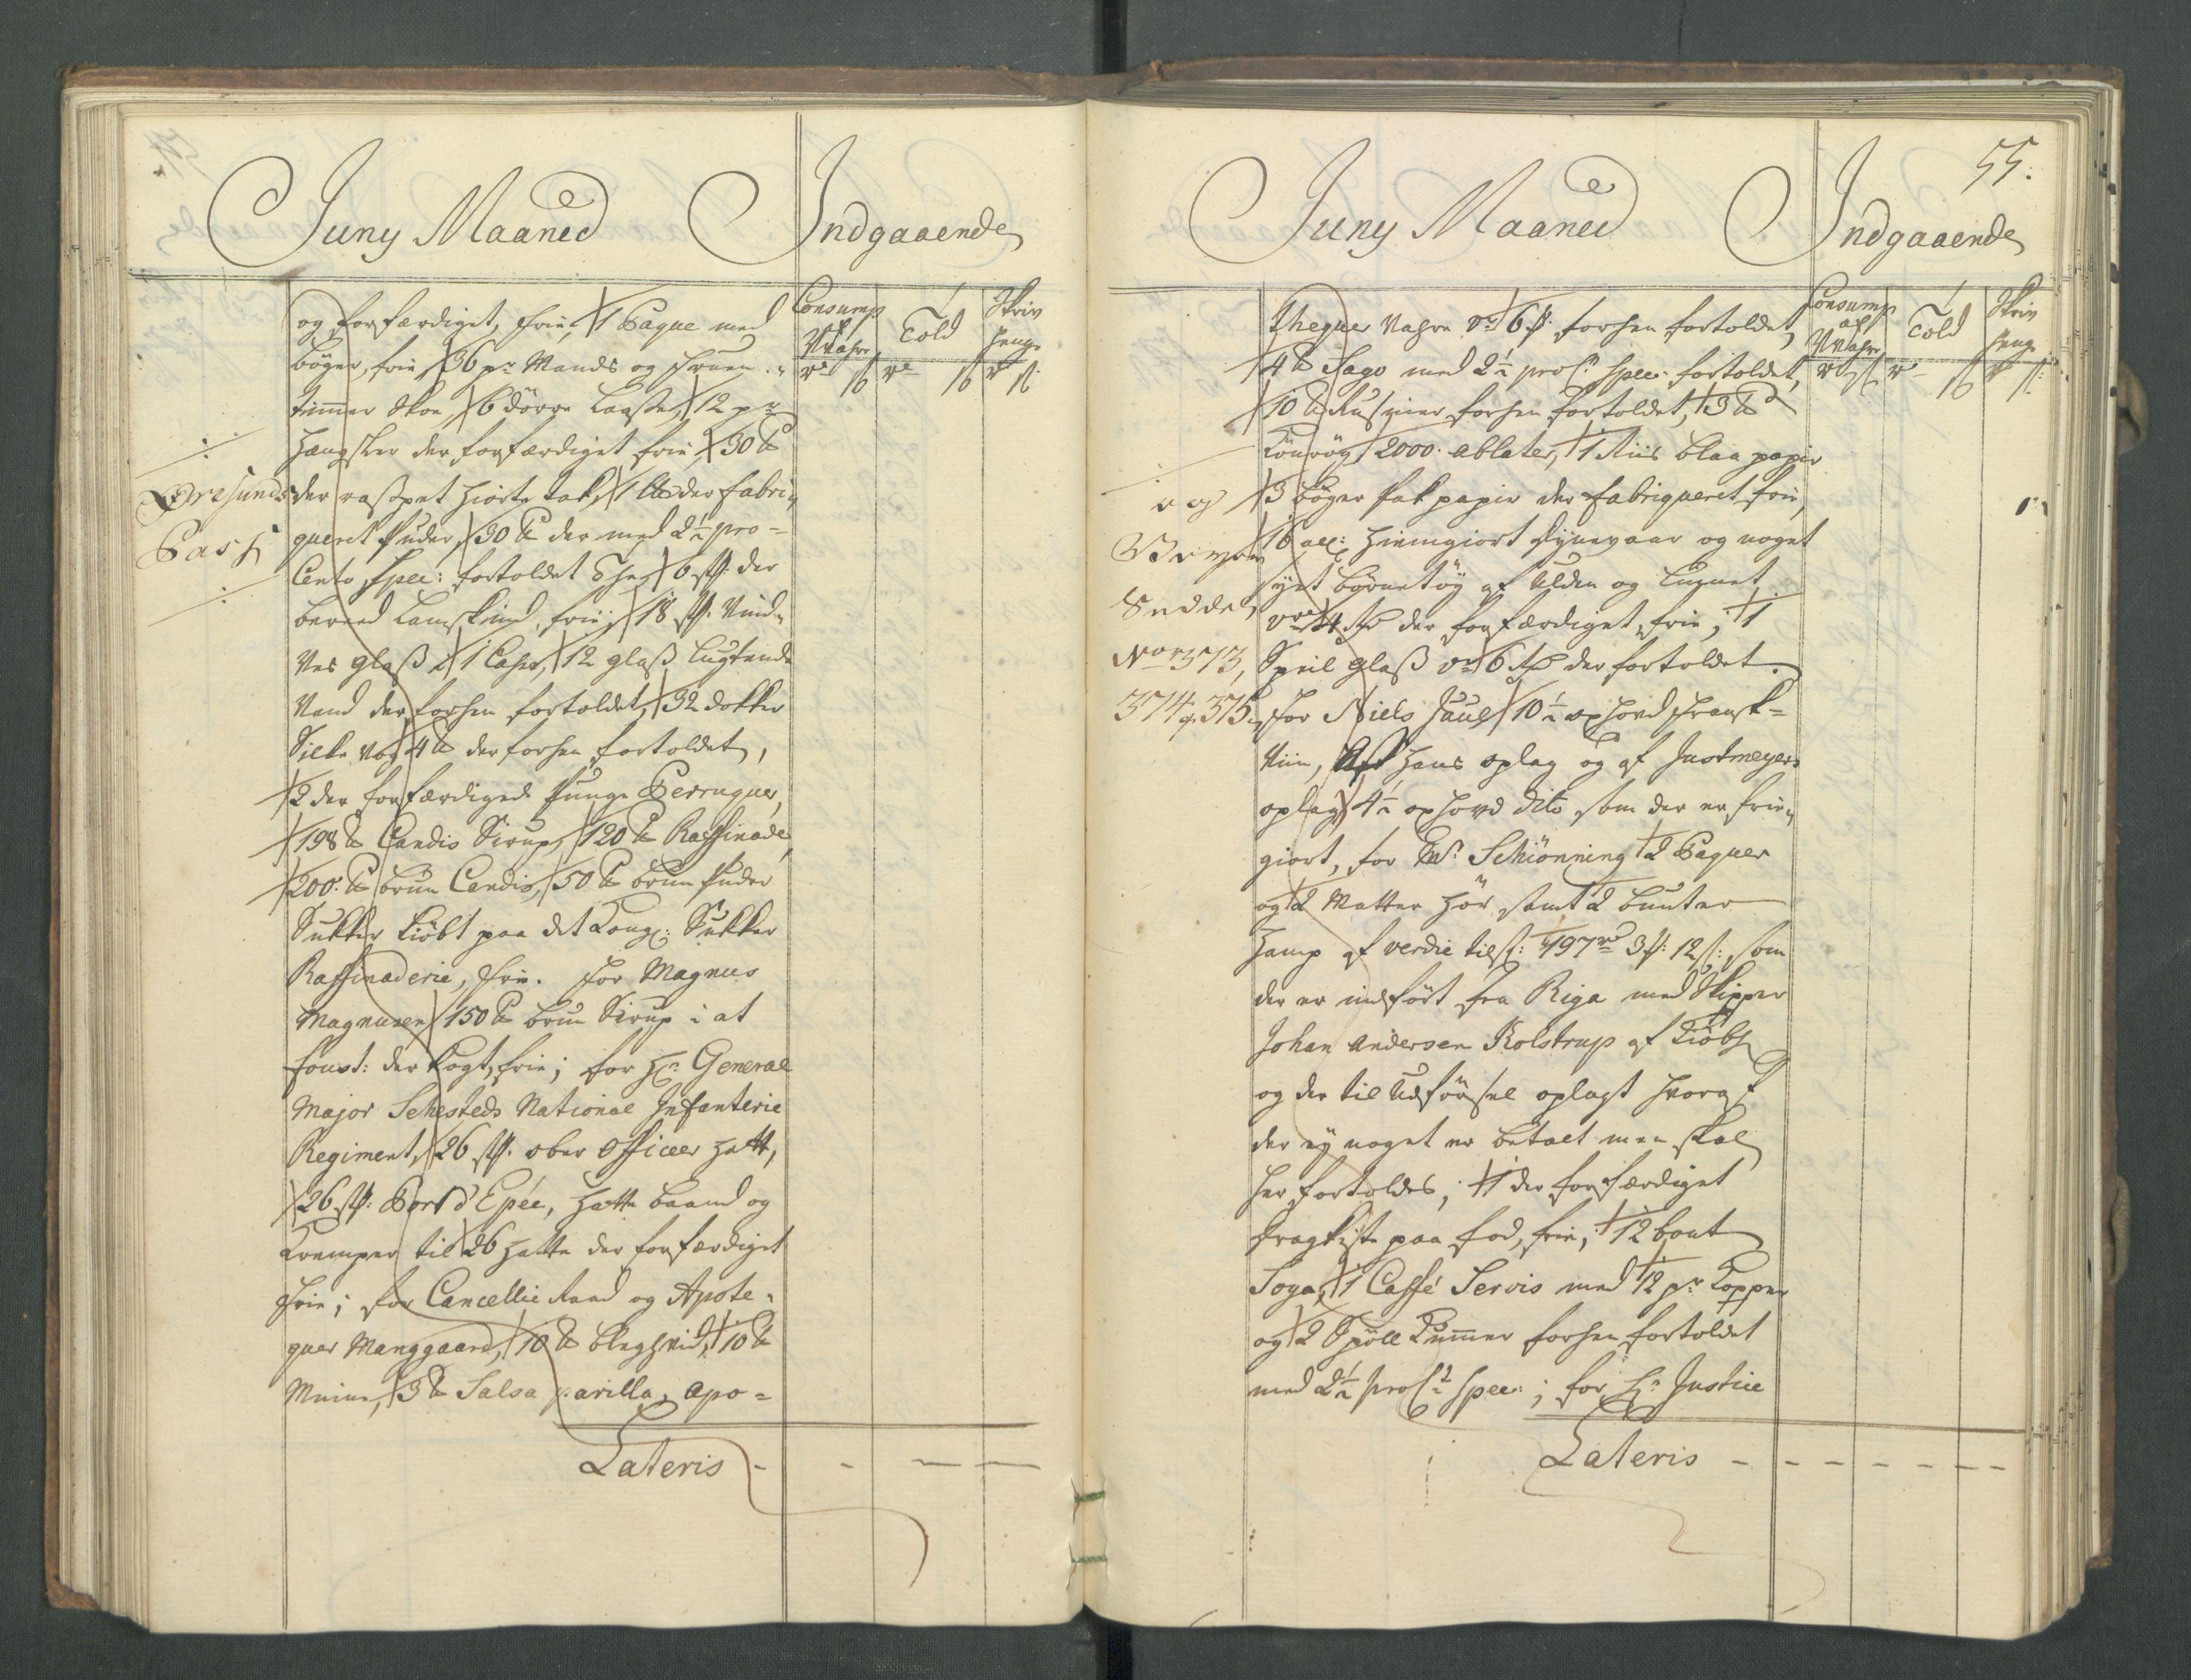 Juny Maaned Indgaaende
Consump
af
Wahre Told Skriv
Penge
og forfærdiget, frie, 1 Paque med
bøger, frie, 36 pr Mands og Fruen-
timmer Skoe, 6 dørre Laaße, 12 pr
Hængsler der forfærdiget frie, 30 ℔
der raspet Hiorte tak, 1 der fabri-
queret Puder, 30 ℔ der med 2½ pro-
Cento Spec: fortoldet The, 6 st: der
bereed Lamskind, frie, 18 st: Vind-
ves glaß, 1 12 glaß Lugtende
Vand der forhen fortoldet, 32 dokker
Silke 4 ℔ der forhen fortoldet,
2 der forfærdigede Punge Perruquer,
198 ℔ Candis Sirup, 120 ℔ Raffinade,
200 ℔ bruun Candis, 50 ℔ bruun Puder
Sukker kiøbt paa det Kongl: Sukker
Raffinaderie, frie. for Magnus
Magnusen 150 ℔ bruun Sirup i at
foust: der kogt, frie; for Hr General
Major Sehesteds National Infanterie
Regiment, 26 st. ober Officeer Hatt,
26 st: Port d'Epée, Hatte baand og
Kremper til 26 Hatte der forfærdiget
frie; for Cancellie Raad og Apote-
quer Manggaard, 10 ℔ bleghvid, 10 ℔
Minie, 3 ℔ Salsa parilla, Apo-
Lateris - - - -
Øresunds
Pass
Juny Maaned Indgaaende 55.
Consump
af
Wahre Told Skriv
Penge
thequer Vahre vr 6 forhen fortoldet,
4 ℔ Sago med 2½ proC. Spec: fortoldet,
10 ℔ Rusiner forhen fortoldet, 3 ℔
Kønrøg, 2000. ablater, 1 Riis blaa papir
3 bøger Pak papir der fabriqueret frie,
16 al: Hiemgiort dynevaar og noget
syet børnetøy af Ulden og Linnet
vr 4 der forfærdiget, frie; 1
Speil glaß vr 6 der fortoldet.
for Niels Juul 10½ oxhovd Fransk-
Viin, Af Hans oplag og af Justmeyers
oplag 4½ oxhovd dito som der er frie-
giort, for Mr Schiønning 2 Paquer
og 2 Matter Hør samt 2 bunter
Hamp af verdie tils: 497 rd 3 : 12 s:, som
der er indført fra Riga med Skipper
Johan Andersen Kolstrup af Kiøbh
og der til Udførsel oplagt hvoraf
der ey noget er betalt men skal
her fortoldes; 1 der forfærdiget
Dragkiste paa fod, frie; 12 bout
Soya, 1 Caffé Servis med 12 pr Kopper
og 2 Spøll Kummer forhen fortoldet
med 2½ proCt Spec: ; for Hr Justice
Lateris - - - - - - -
og
Bremer
Sedde
Nor 373,
374 & 375